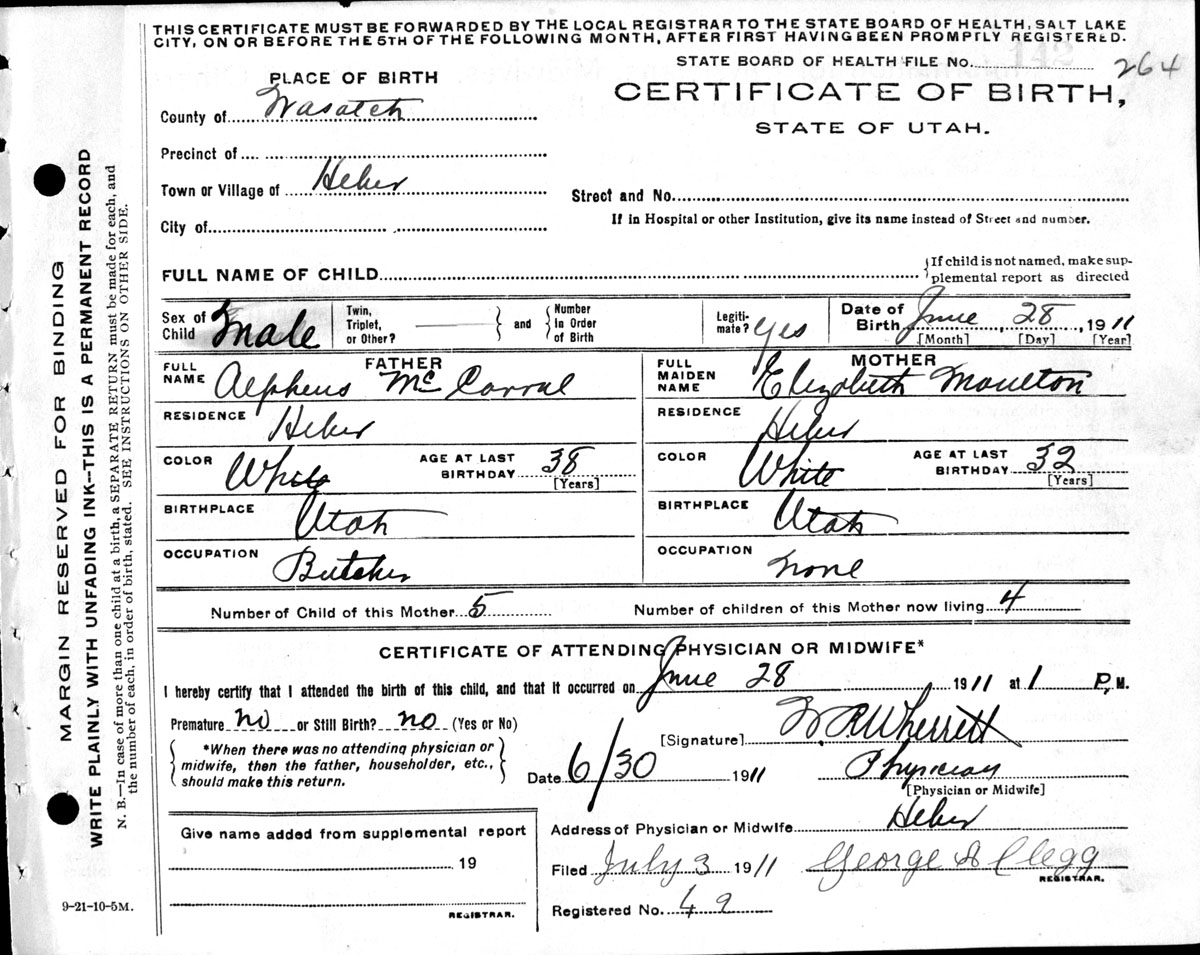 THIS CERTIFICATE MUST BE FORWARDED BY THE LOCAL REGISTRAR TO THE STATE BOARD OF HEALTH, SALT LAKE
CITY, ON OR BEFORE THE 5TH OF THE FOLLOWING MONTH, AFTER FIRST HAVING BEEN PROMPTLY REGISTERED.
STATE BOARD OF HEALTH FILE No. 264
PLACE OF BIRTH
CERTIFICATE OF BIRTH,
STATE OF UTAH.
County of Wasatch
Precinct of
Town or Village of Heber
Street and No.
If in Hospital or other Institution, give its name instead of Street and number.
City of
FULL NAME OF CHILD
If child is not named, make sup-
plemental report as directed
Sex of Child Male
Twin, Triplet, or Other?
and
Number In Order of Birth
Legiti-mate? yes
Date of Birth June 28, 1911
[Month] [Day] [Year]
FATHER
FULL NAME Alpheus McCarral
RESIDENCE Heber
COLOR White
AGE AT LAST BIRTHDAY 38
[Years]
BIRTHPLACE Utah
OCCUPATION Butcher
MOTHER
FULL MAIDEN NAME Elizabeth Moulton
RESIDENCE Heber
COLOR White
AGE AT LAST BIRTHDAY 32
[Years]
BIRTHPLACE Utah
OCCUPATION None
Number of Child of this Mother 5
Number of children of this Mother now living 4
CERTIFICATE OF ATTENDING PHYSICIAN OR MIDWIFE*
I hereby certify that I attended the birth of this child, and that it occurred on June 28 1911 at 1 P. M.
Premature no or Still Birth? no (Yes or No)
*When there was no attending physician or
midwife, then the father, householder, etc.,
should make this return.
[Signature] W R Wherrett
Date 6/30 1911 Physician
[Physician or Midwife]
Give name added from supplemental report
19
REGISTRAR.
Address of Physician or Midwife Heber
Filed July 3 1911 George A Clegg
REGISTRAR.
Registered No. 49
9-21-10-5M.
MARGIN RESERVED FOR BINDING
WRITE PLAINLY WITH UNFADING INK--THIS IS A PERMANENT RECORD
N. B.—In case of more than one child at a birth, a SEPARATE RETURN must be made for each, and
the number of each, in order of birth, stated. SEE INSTRUCTIONS ON OTHER SIDE.